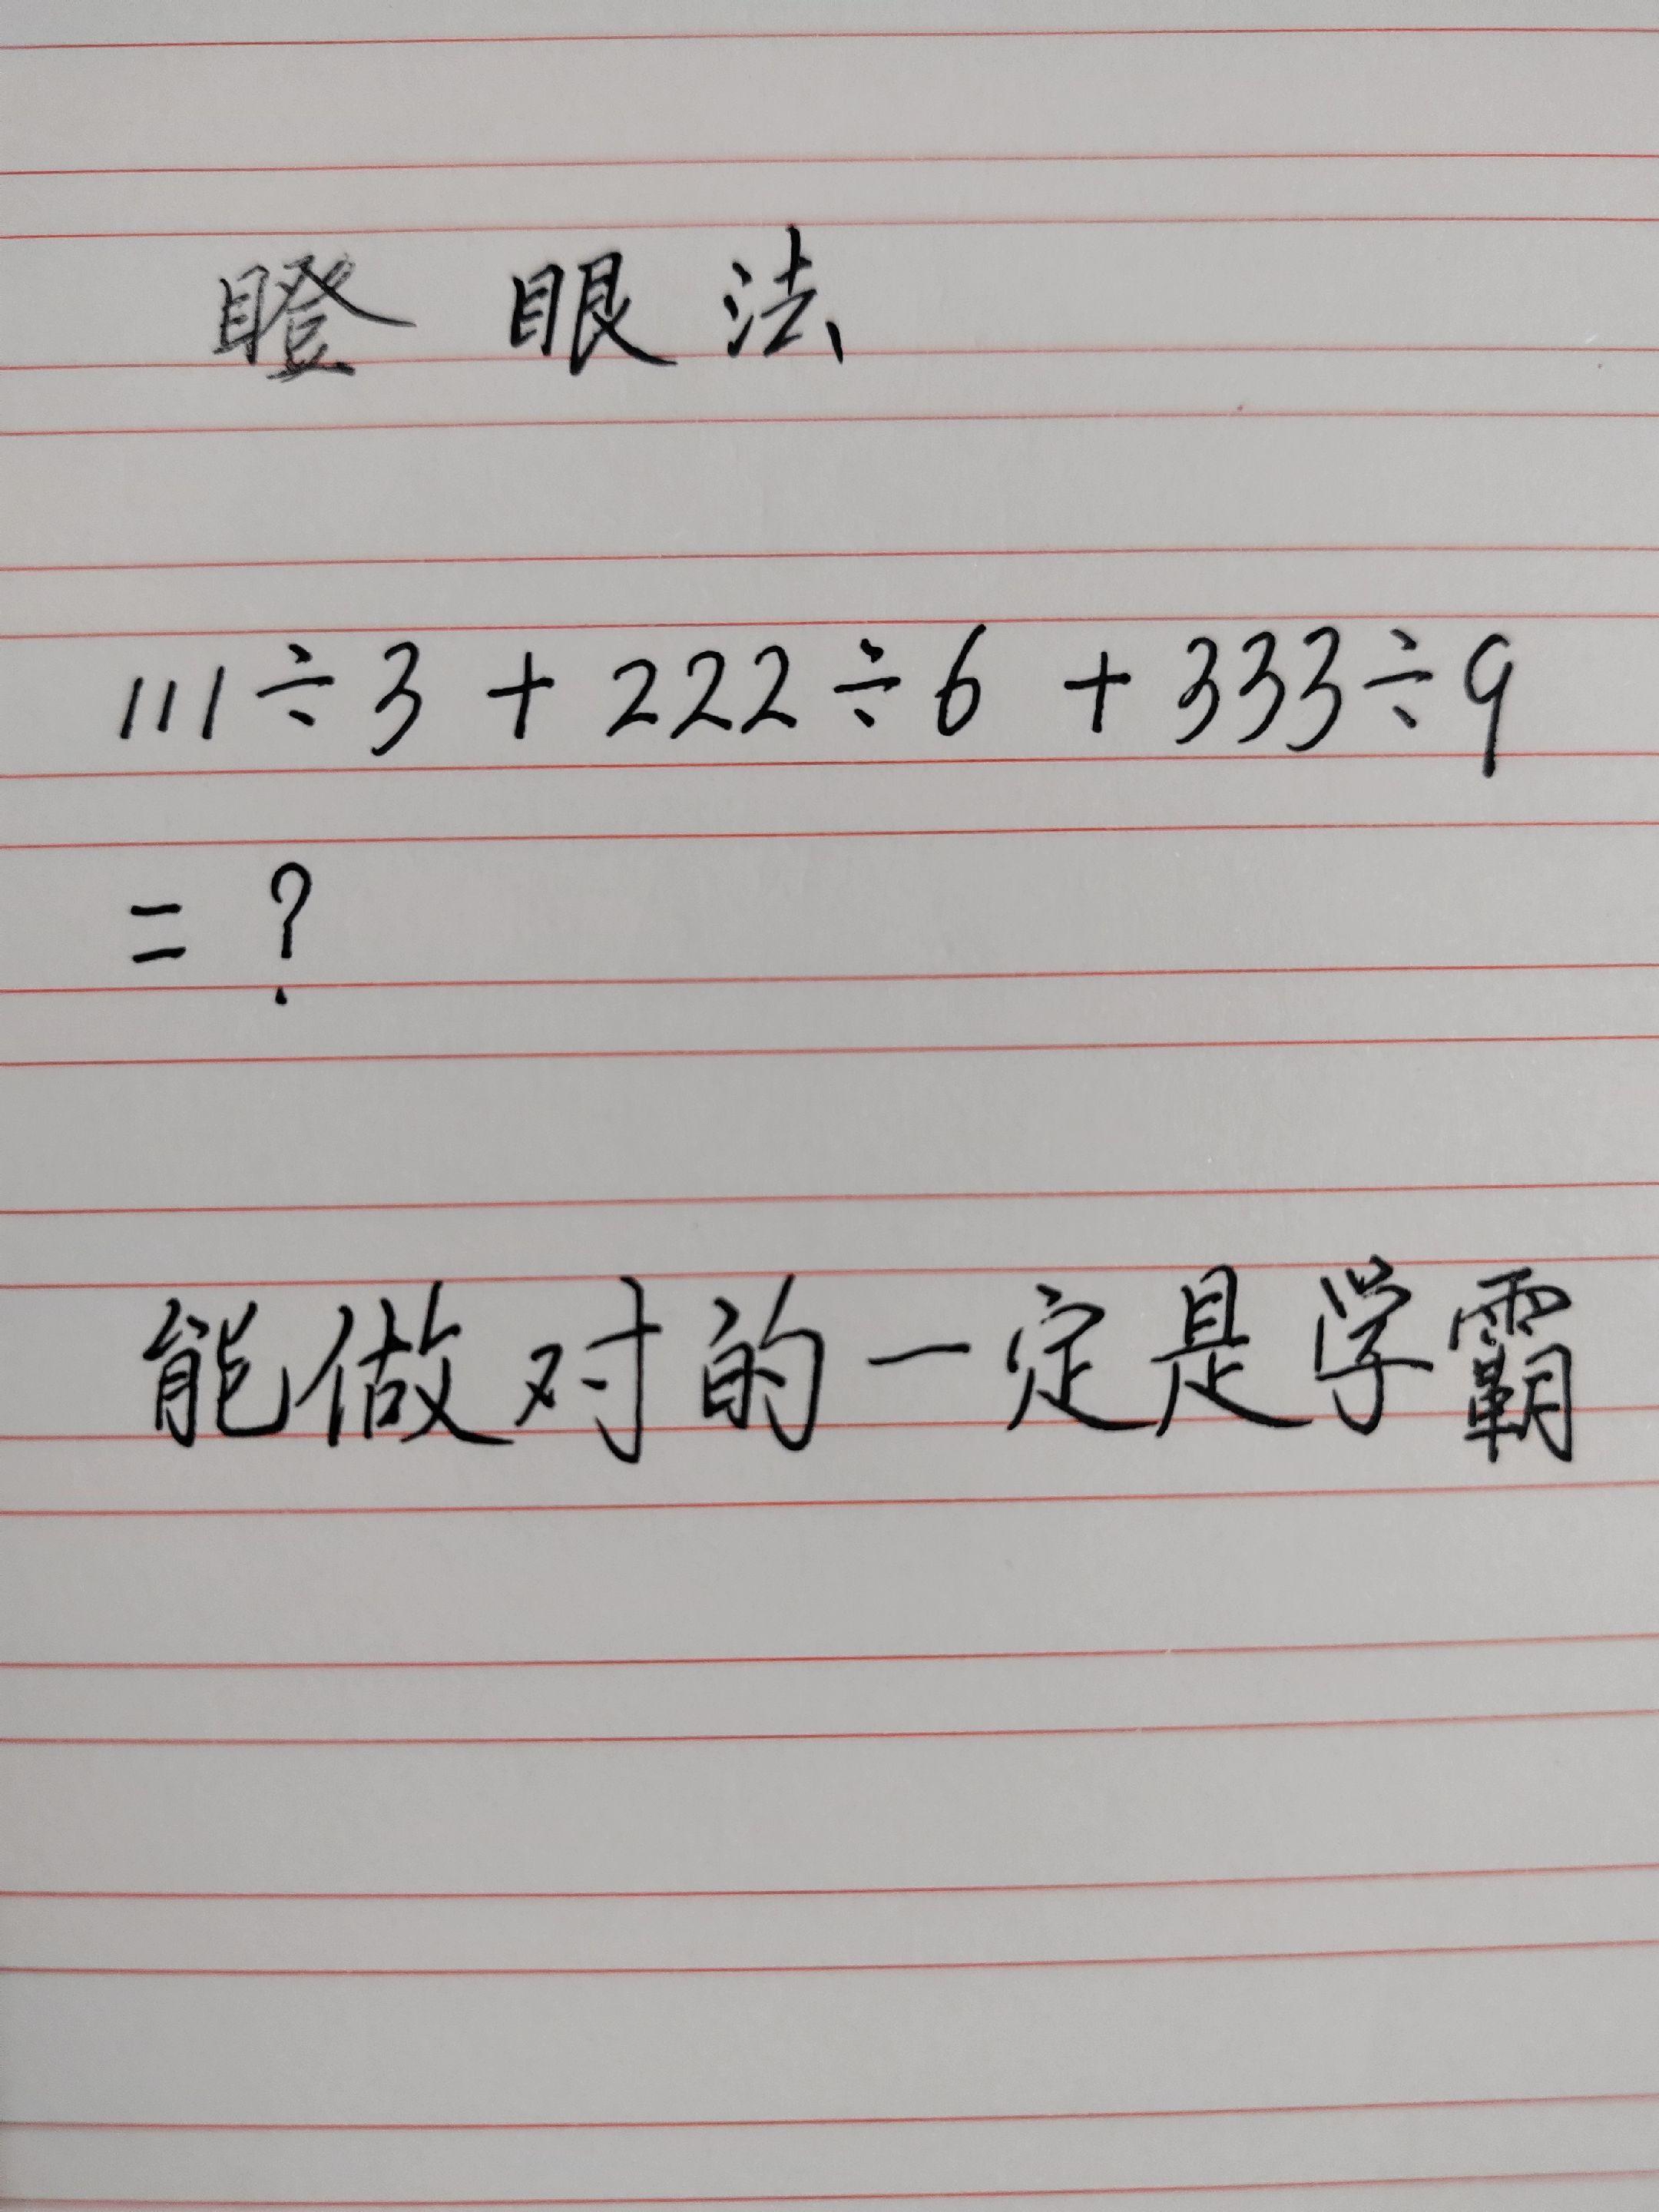 瞪眼法
111÷3+222÷6+333÷9
=?
能做对的一定是学霸